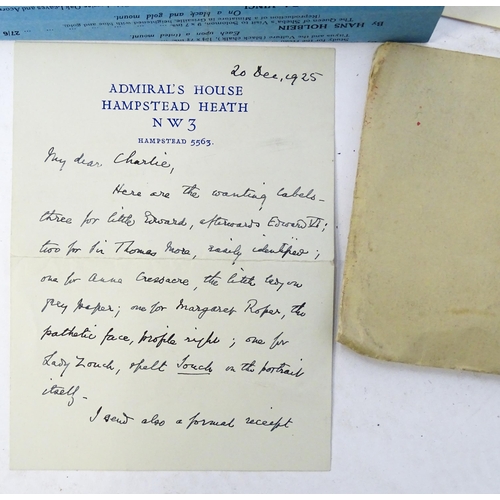 By HANS HOLBEIN
On a black and gold mount.
Each upon a tinted mount.
27/6
20 Dec, 1925
ADMIRAL'S HOUSE
HAMPSTEAD HEATH
NW3
HAMPSTEAD 5563.
My dear Charlie,
Here are the wanting labels -
three for little Edwards, afterwards Edward VI;
two for Sir Thomas More, easily identified;
one for Anna Cressacre, the little lady on
grey paper; one for Margaret Roper, the
pathetic face, profile right; one for
Lady Zouch, spelt Souch on the portrait
itself -
I send also a formal receipt